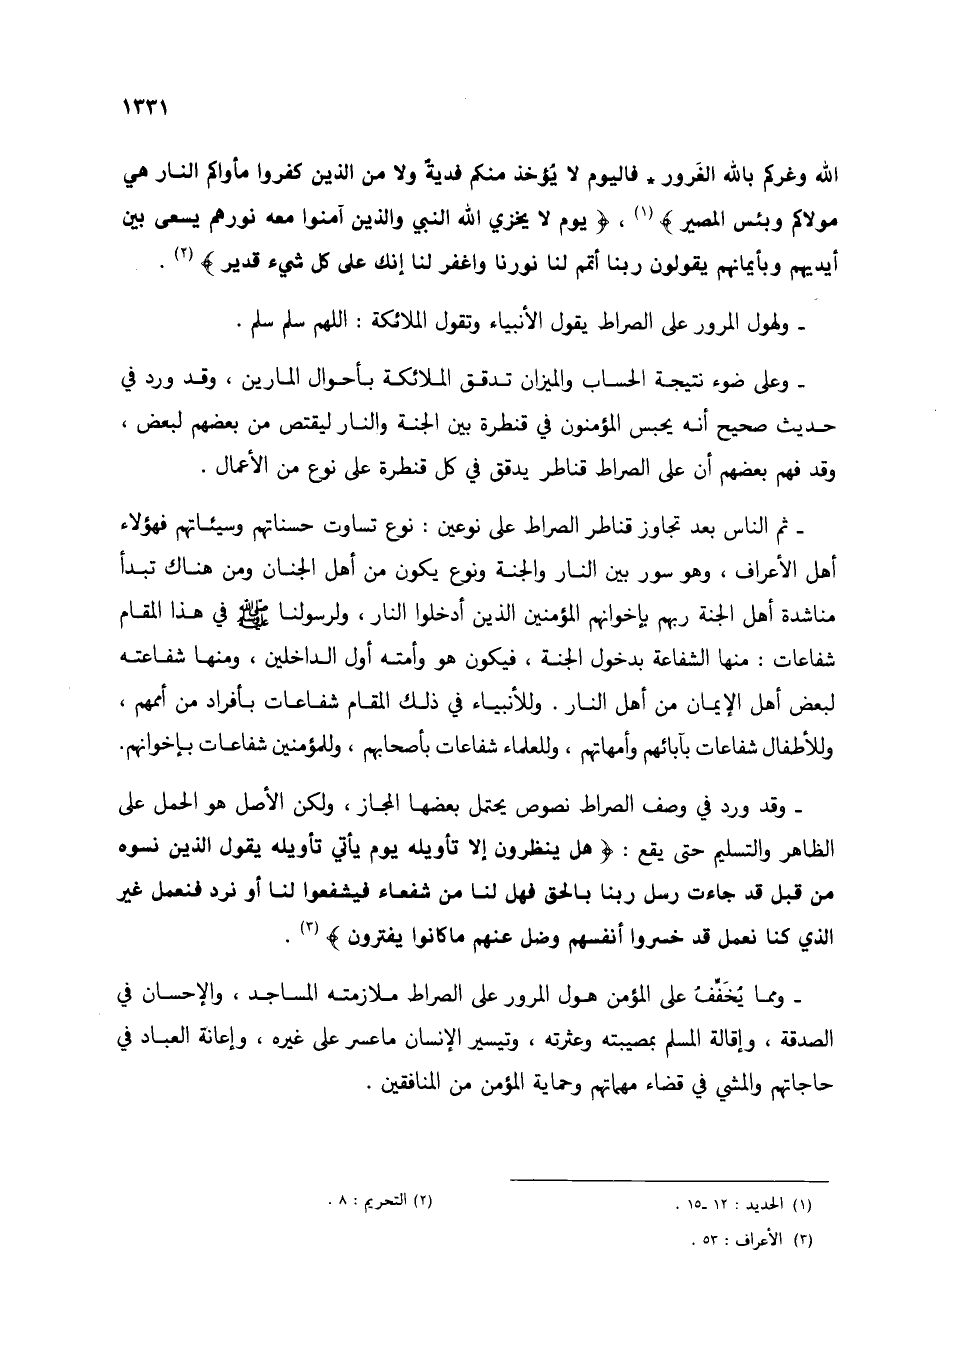 ١٣٣١
الله وغركم بالله الغَرور * فاليوم لا يُؤخذ منكم فديةٌ ولا من الذين كفروا مأواكم النـار هي
مولاكم وبئس المصير ﴾ (١) ، ﴿ يوم لا يخزي الله النبي والذين آمنوا معه نورهم يسعى بين
أيديهم وبأيمانهم يقولون ربنا أتمم لنا نورنا واغفر لنا إنك على كل شيء قدير ﴾ (٢) .
ـ ولهول المرور على الصراط يقول الأنبياء وتقول الملائكة : اللهم سلم سلم .
ـ وعلى ضوء نتيجـة الحساب والميزان تـدقـق الملائكـة بـأحـوال المـارين ، وقـد ورد في
حـديث صحيح أنـه يحبس المؤمنون في قنطرة بين الجنـة والنـار ليقتص من بعضهم لبعض ،
وقد فهم بعضهم أن على الصراط قناطر يدقق في كل قنطرة على نوع من الأعمال .
ـ ثم الناس بعد تجاوز قناطر الصراط على نوعين : نوع تساوت حسناتهم وسيئـاتهم فهؤلاء
أهل الأعراف ، وهو سور بين النـار والجنـة ونوع يكون من أهل الجنـان ومن هنـاك تبـدأ
منـاشدة أهل الجنـة ربهم بإخوانهم المؤمنين الذين أدخلوا النار ، ولرسولنـا ﷺ في هـذا المقـام
شفاعات : منها الشفاعة بدخول الجنـة ، فيكون هو وأمتـه أول الـداخلين ، ومنهـا شفـاعتـه
لبعض أهل الإيمـان من أهل النـار . وللأنبيـاء في ذلـك المقـام شفـاعـات بـأفراد من أممهم ،
وللأطفال شفاعات بآبائهم وأمهاتهم ، وللعلماء شفاعات بأصحابهم ، وللمؤمنين شفاعـات بـإخوانهم.
ـ وقد ورد في وصف الصراط نصوص يحتمل بعضهـا المجـاز ، ولكن الأصل هو الحمل على
الظاهر والتسليم حتى يقع : ﴿ هل ينظرون إلا تأويله يوم يأتي تأويله يقول الذين نسوه
من قبل قد جاءت رسل ربنـا بـالحق فهل لنـا من شفعـاء فيشفعوا لنـا أو نرد فنعمل غير
الذي كنا نعمل قد خسروا أنفسهم وضل عنهم ماكانوا يفترون ﴾ (٣) .
ـ ومما يُخَفِّفُ على المؤمن هـول المرور على الصراط مـلازمتـه المسـاجـد ، والإحسان في
الصدقة ، وإقالة المسلم بمصيبته وعثرته ، وتيسير الإنسان ماعسر على غيره ، وإعانة العبـاد في
حاجاتهم والمشي في قضاء مهماتهم وحماية المؤمن من المنافقين .
(١) الحديد : ١٢ ـ ١٥ .
(٢) التحريم : ٨ .
(٣) الأعراف : ٥٣ .